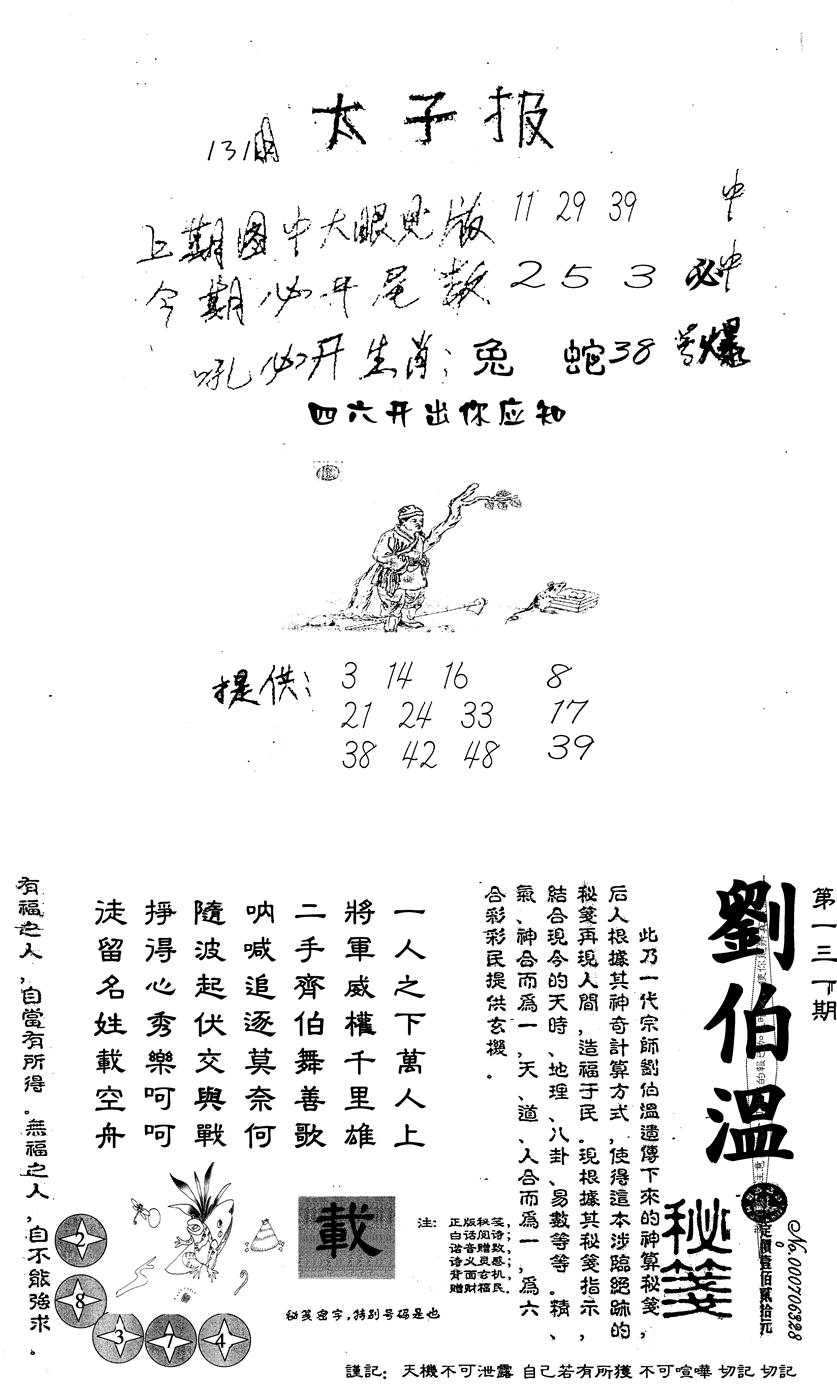 太子报
131期
上期图中大眼见版 11 29 39 中
今期必开尾数 2 5 3 必中
必开生肖：兔 蛇38 爆
四六开出你应知
提供： 3 14 16 8
21 24 33 17
38 42 48 39
第一三一期
劉伯溫
秘箋
定價壹佰貳拾元
No.000706328
此乃一代宗師劉伯溫遺傳下來的神算秘箋，
后人根據其神奇計算方式，使得這本涉臨絕跡的
秘箋再現人間，造福于民。現根據其秘箋指示，
結合現今的天時、地理、八卦、易數等等。精、
氣、神合而爲一，天、道、人合而爲一，爲六
合彩彩民提供玄機。
一人之下萬人上
將軍威權千里雄
二手齊伯舞善歌
呐喊追逐莫奈何
隨波起伏交與戰
掙得心秀樂呵呵
徒留名姓載空舟
有福之人，自當有所得。無福之人，自不能強求。
載
注：
正版秘笺，
白话阅诗；
谐音赠数，
诗义灵感；
背面玄机，
赠财福民。
秘笺密字，特别号码是也
2
8
3
7
4
謹記：天機不可泄露 自己若有所獲 不可喧嘩 切記 切記